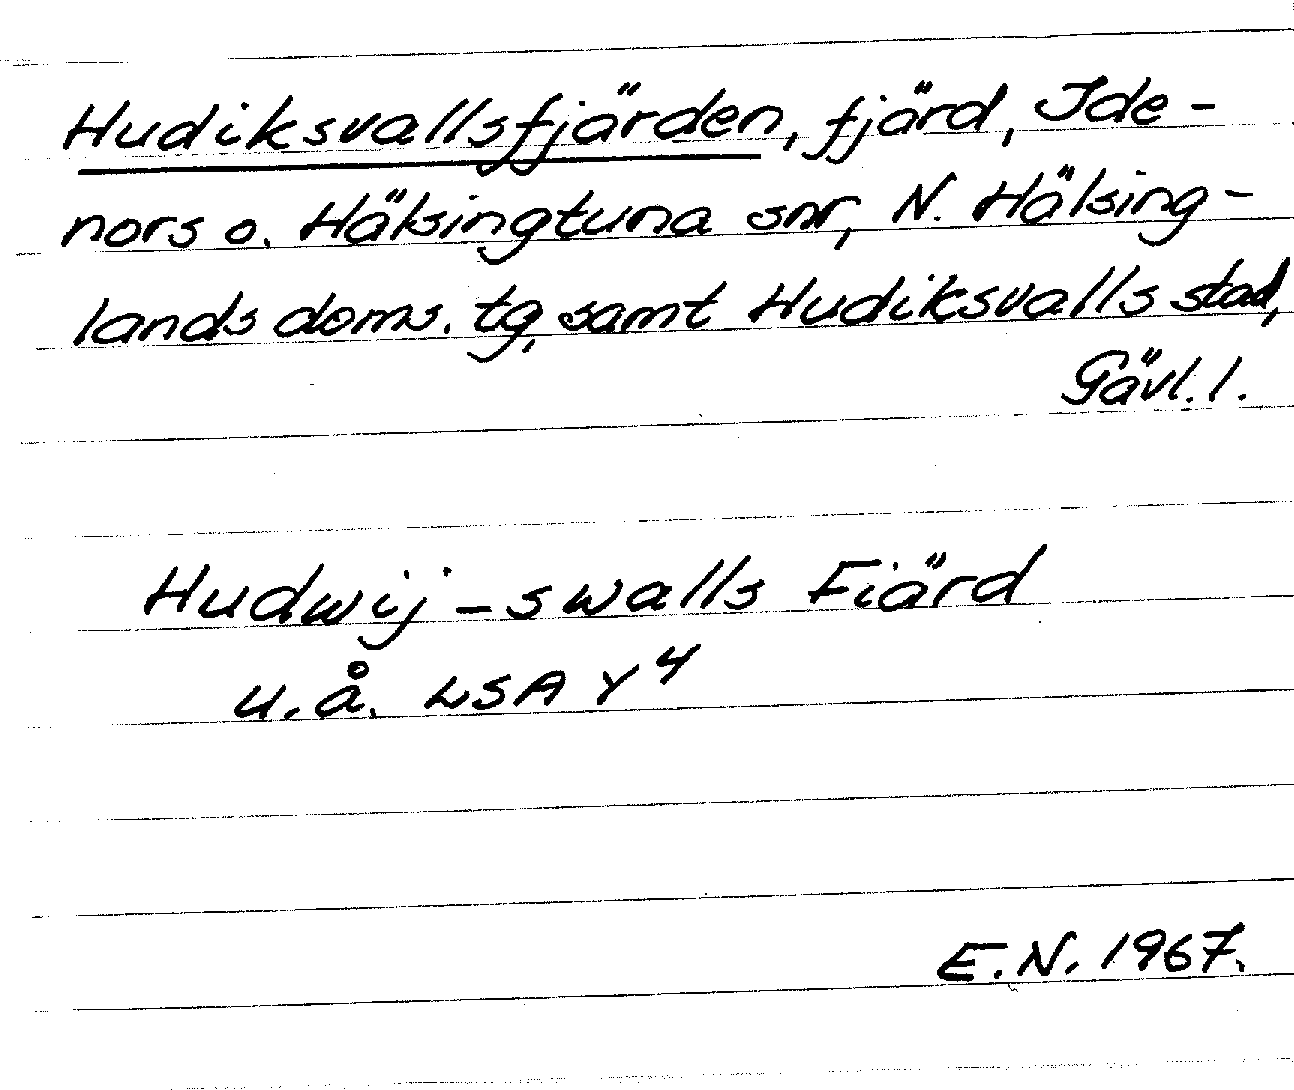 Hudiksvallsfjärden, fjärd, Ide-
nors o. Hälsingtuna snr, N. Hälsing-
lands doms. tg, samt Hudiksvalls stad,
Gävl. l.
Hudwij-swalls Fiärd
u.å. LSA Y 4
E.N. 1967.